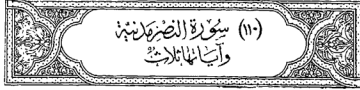 (١١٠) سُورَة النَّصْر مَدَنيَّة
وَآيَاتهَا ثَلَاثٌ